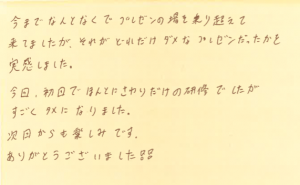 今までなんとなくでプレゼンの場を乗り越えて
来てましたが、それがどれだけダメなプレゼンだったかを
実感しました。
今日、初日でほんとにさわりだけの研修でしたが
すごくタメになりました。
次回からも楽しみです。
ありがとうございました